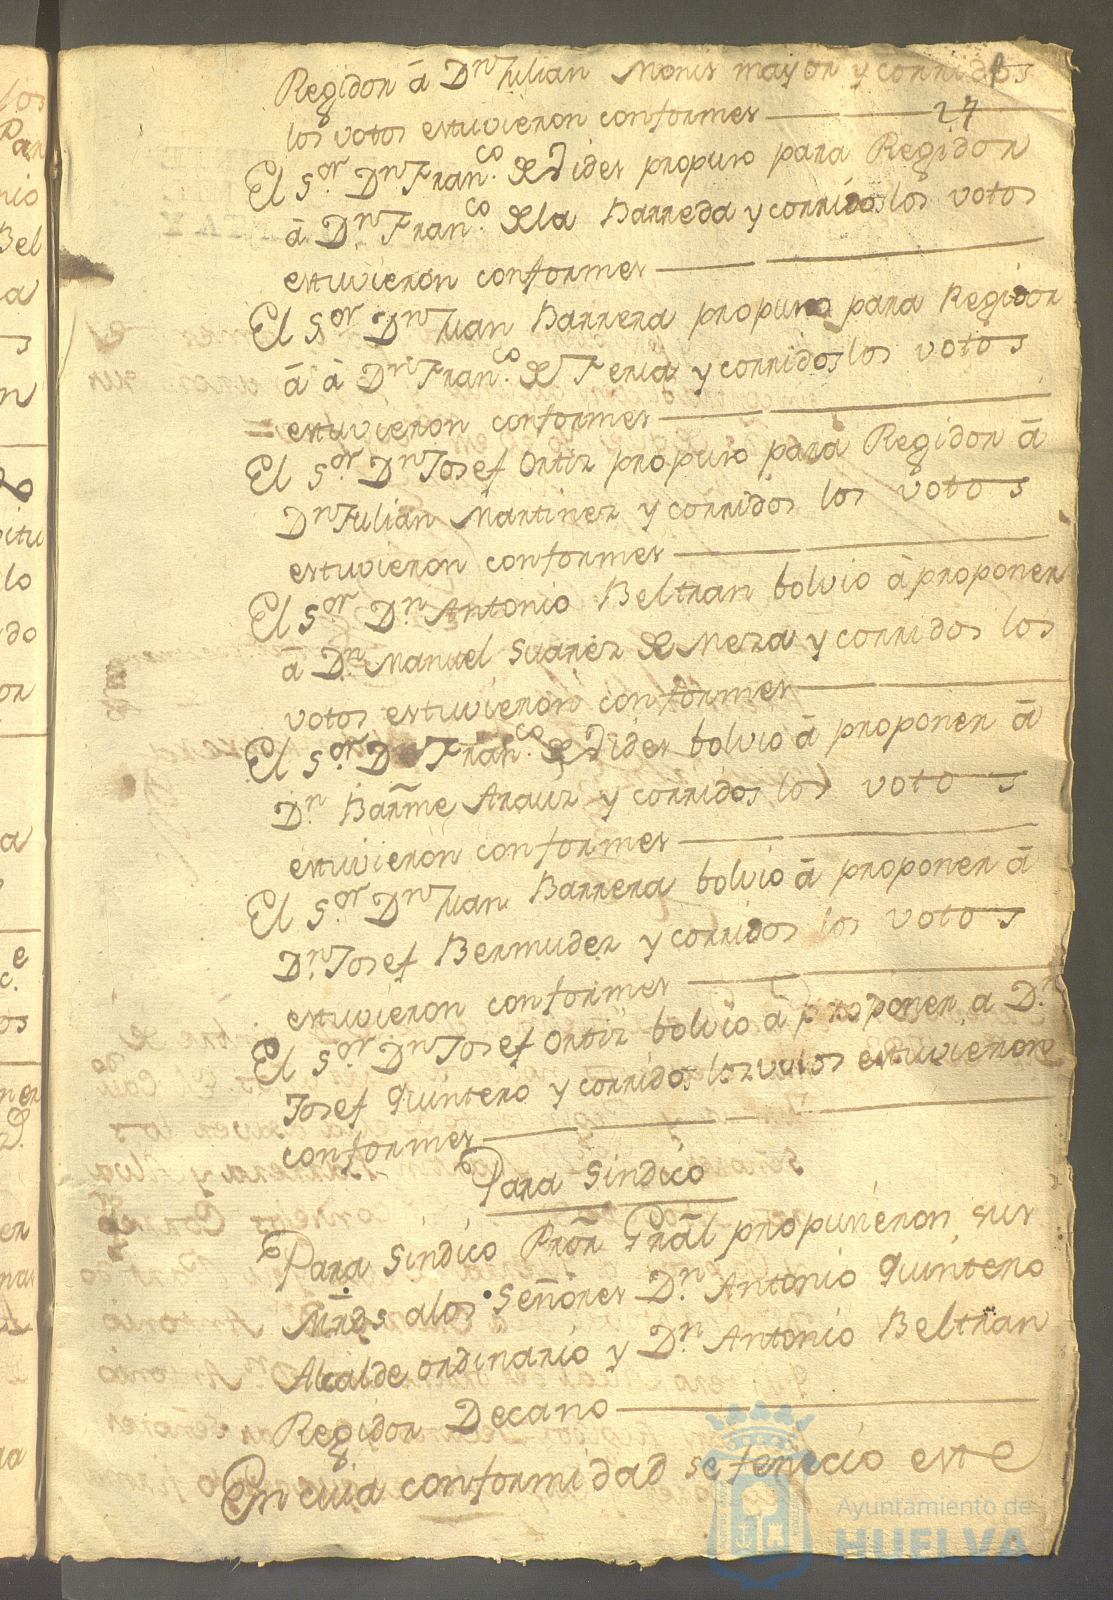 Regidor â Dn Julian Monis mayor y corridos
los votos estuvieron conformes
27
El Sor. Dn Franco. de Vides propuso para Regidor
â Dn. Franco. de la Barreda y corridos los votos
estuvieron conformes
El Sor Dn Juan Barrera propuso para Regidor
â à Dn Franco. de Feria y corridos los votos
estuvieron conformes
El Sor Dn Josef Ortiz propuso para Regidor â
Dn Julian Martinez y corridos los votos
estuvieron conformes
El Sor Dn Antonio Beltran bolvio â proponer
â Dn. Manuel Suarez de Meza y corridos los
votos estuvieron conformes
El Sor. Dn Franco. de Vides bolvio â proponer â
Dn. Barme Arauz y corridos los votos
estuvieron conformes
El Sor Dn Juan Barrera bolvio â proponer â
Dn. Josef Bermudez y corridos los votos
estuvieron conformes
El Sor Dn Josef Ortiz bolvio â proponer a Dn
Josef Quintero y corridos los votos estuvieron
conformes
Para Sindico
Para Sindico Pror Gral propusieron sus
Mrds a los Señores Dn. Antonio Quintero
Alcalde ordinario y Dn Antonio Beltran
Regidor Decano
En cuia conformidad se feneció este
Ayuntamiento de
HUELVA